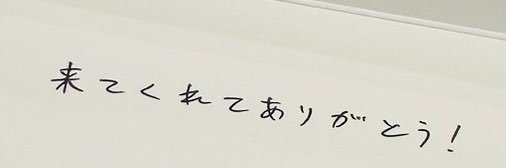 来てくれてありがとう!